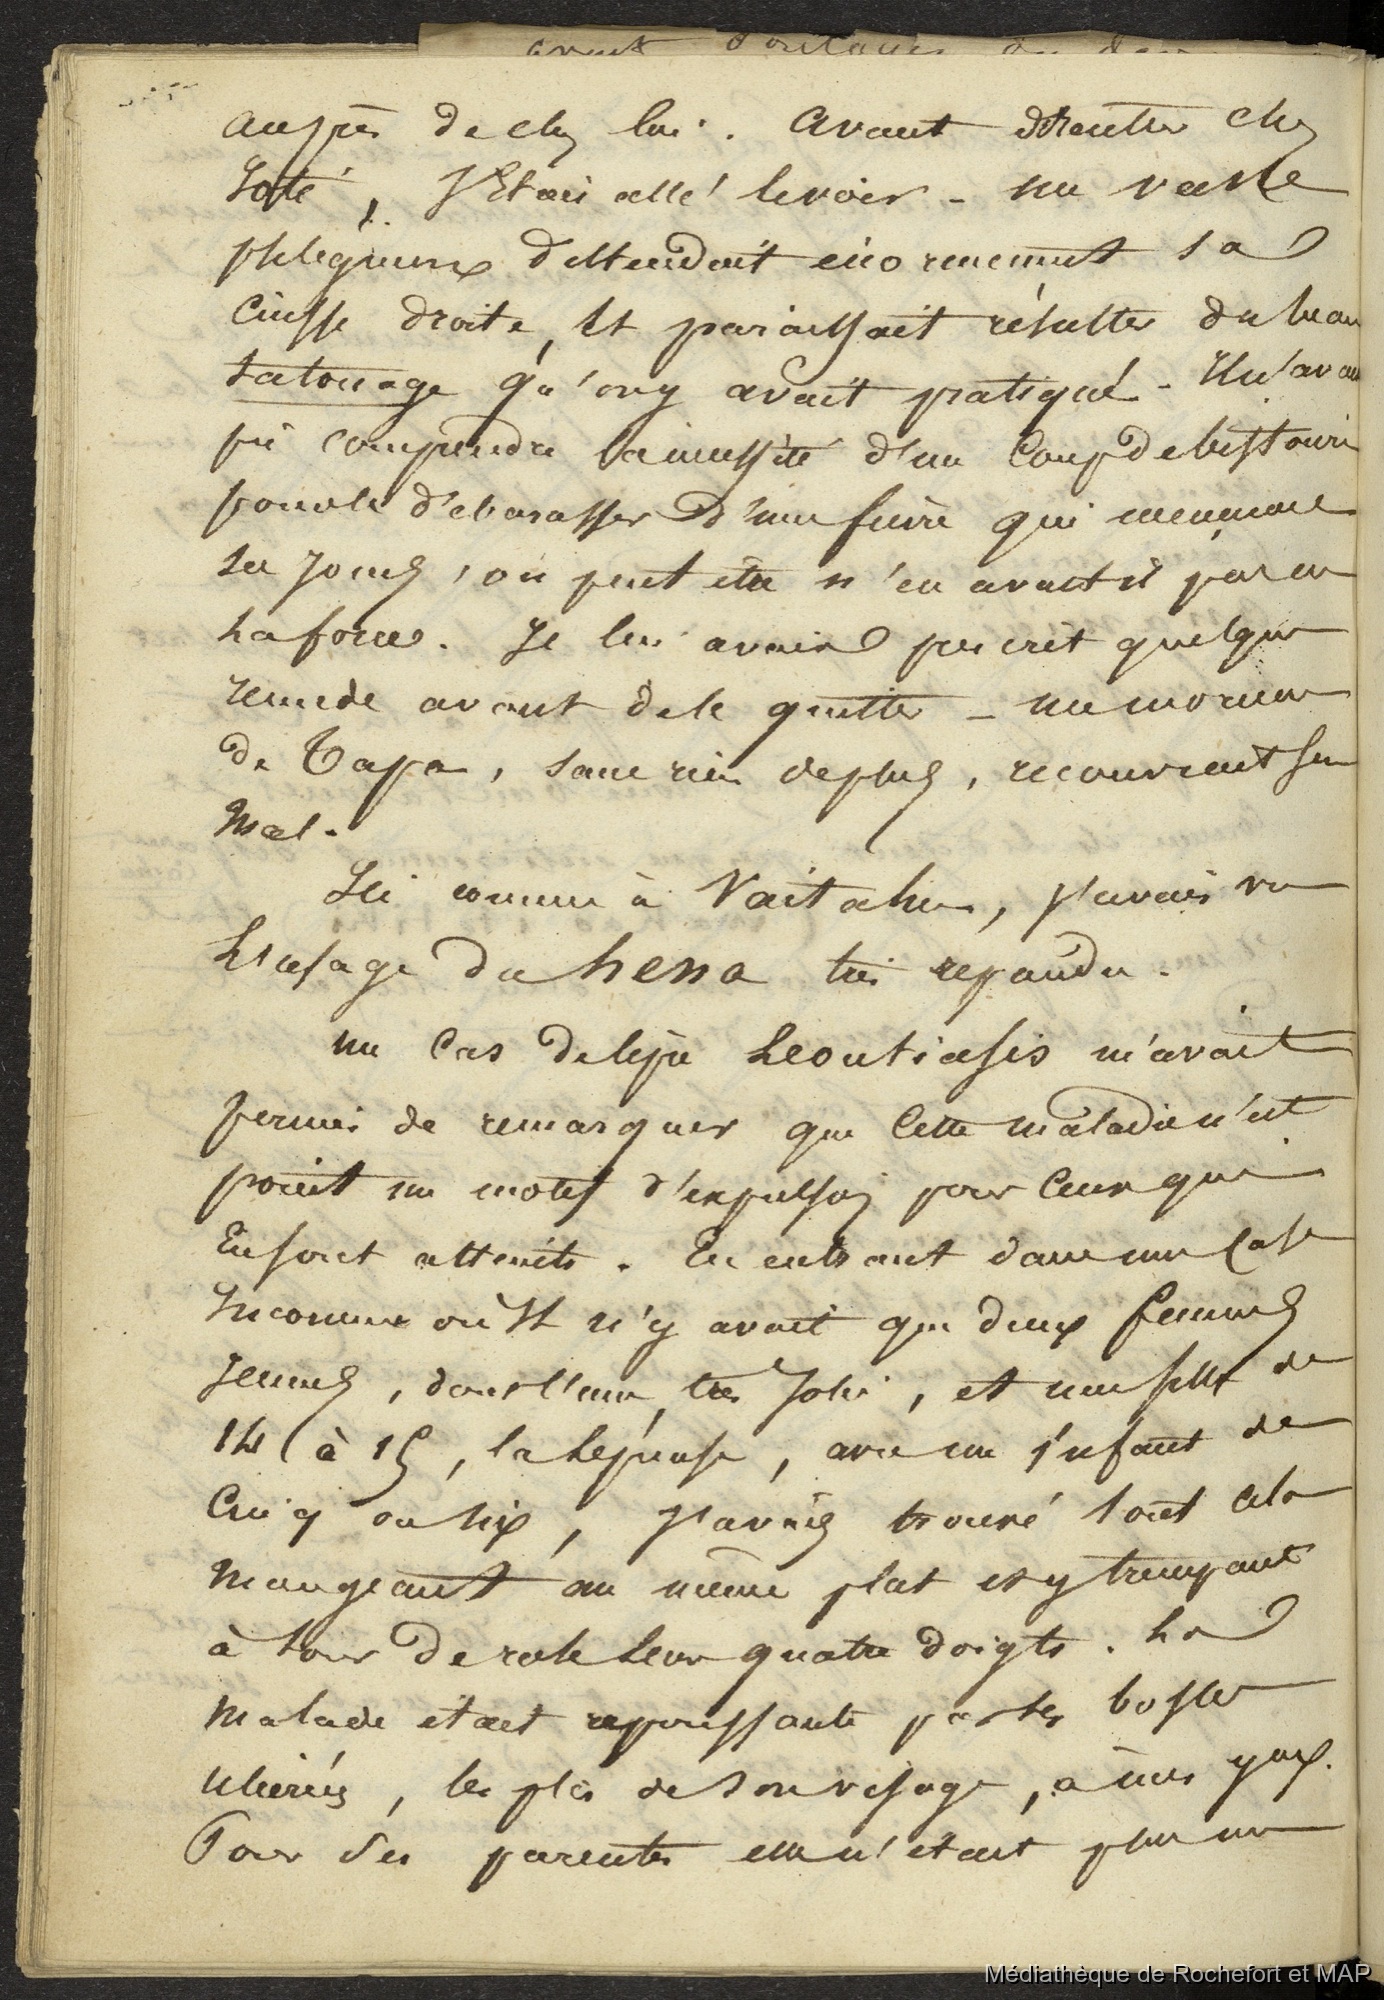 auprès de chez lui. Avant d'entrer chez
Ioté, J'Etais allé le voir - un vaste
phlegmon distendait énormement sa
Cuisse droite, et paraissait résulter du beau
tatouage qu'on y avait pratiqué - Il n'avait
pû comprendre la nécessité d'un Coup de bistouri
pour le débarasser d'une fievre qui menaçait
ses jours, ou peut être n'en avait il pas eu
la force. Je lui avais prescrit quelques
remede avant de le quitter - un morceau
de Tapa, sans rien de plus, recouvrait son
mal.
Ici comme à Vaitahu, j'avais vu
L'usage du hena très repandu.
un Cas de lèpre Leontiasis m'avait
permis de remarquer que Cette maladie n'est
point un motif d'expulsion pour Ceux qui
En sont atteints. En entrant dans une Case
Inconnue où Il n'y avait que deux femmes
Jeunes, dont l'une très Jolie, et une fille de
14 à 15, la lépreuse, avec un enfant de
Cinq ou six, j'avais trouvé tout cela
mangeant au même plat et y trempant
à tour de role leurs quatre doigts. La
malade était repoussante par les bosses
ulcérées, les plis de son visage, à mes yeux.
Pour ses parentes elle n'était plus une
avant
Médiathèque de Rochefort et MAP